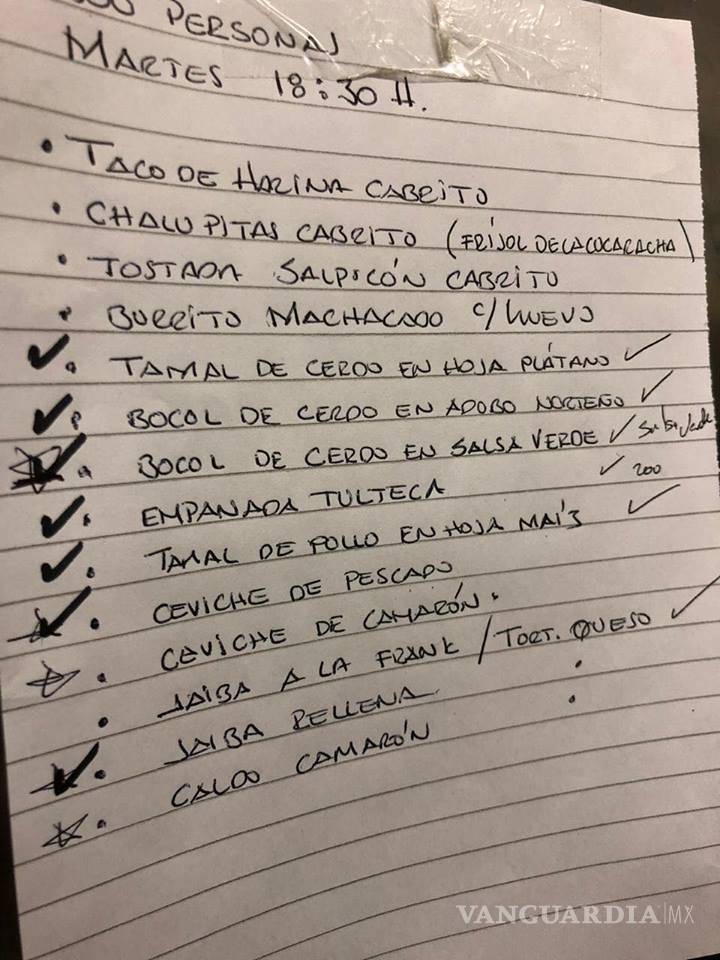 PERSONAS
MARTES 18:30 H.
• TACO DE HARINA CABRITO
• CHALUPITAS CABRITO (FRÍJOL DE LA COCARACHA)
• TOSTADA SALPICÓN CABRITO
• BURRITO MACHACADO C/HUEVO
✓• TAMAL DE CERDO EN HOJA PLÁTANO ✓
✓• BOCOL DE CERDO EN ADOBO NORTEÑO ✓
✓• BOCOL DE CERDO EN SALSA VERDE ✓ Salsa Verde
✓• EMPANADA TULTECA ✓ 200
✓• TAMAL DE POLLO EN HOJA MAÍZ ✓
✓• CEVICHE DE PESCADO
☆• CEVICHE DE CAMARÓN.
• JAIBA A LA FRANK / TORT. QUESO ✓
✓• JAIBA RELLENA
☆• CALDO CAMARÓN
VANGUARDIA|MX